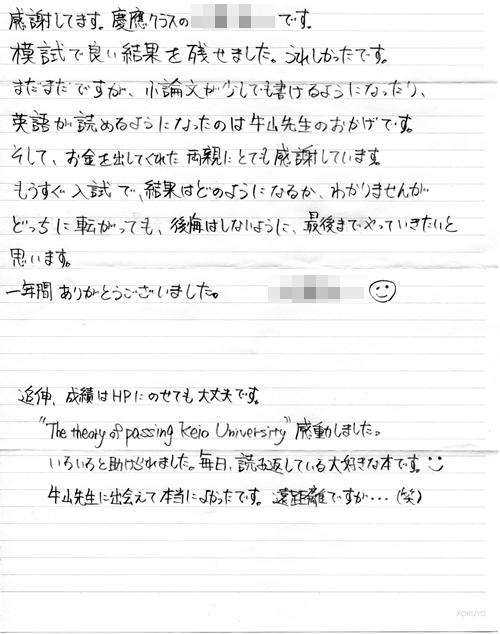 感謝してます。慶應クラスの です。
模試で良い結果を残せました。うれしかったです。
まだまだですが、小論文が少しでも書けるようになったり、
英語が読めるようになったのは牛山先生のおかげです。
そして、お金を出してくれた両親にとても感謝しています。
もうすぐ入試で、結果はどのようになるか、わかりませんが
どっちに転がっても、後悔はしないように、最後までやっていきたいと
思います。
一年間ありがとうございました。
追伸、成績はHPにのせても大丈夫です。
"The theory of passing Keio University" 感動しました。
いろいろと助けられました。毎日、読み返している大好きな本です。
牛山先生に出会えて本当によかったです。遠距離ですが・・・(笑)
KOKUYO